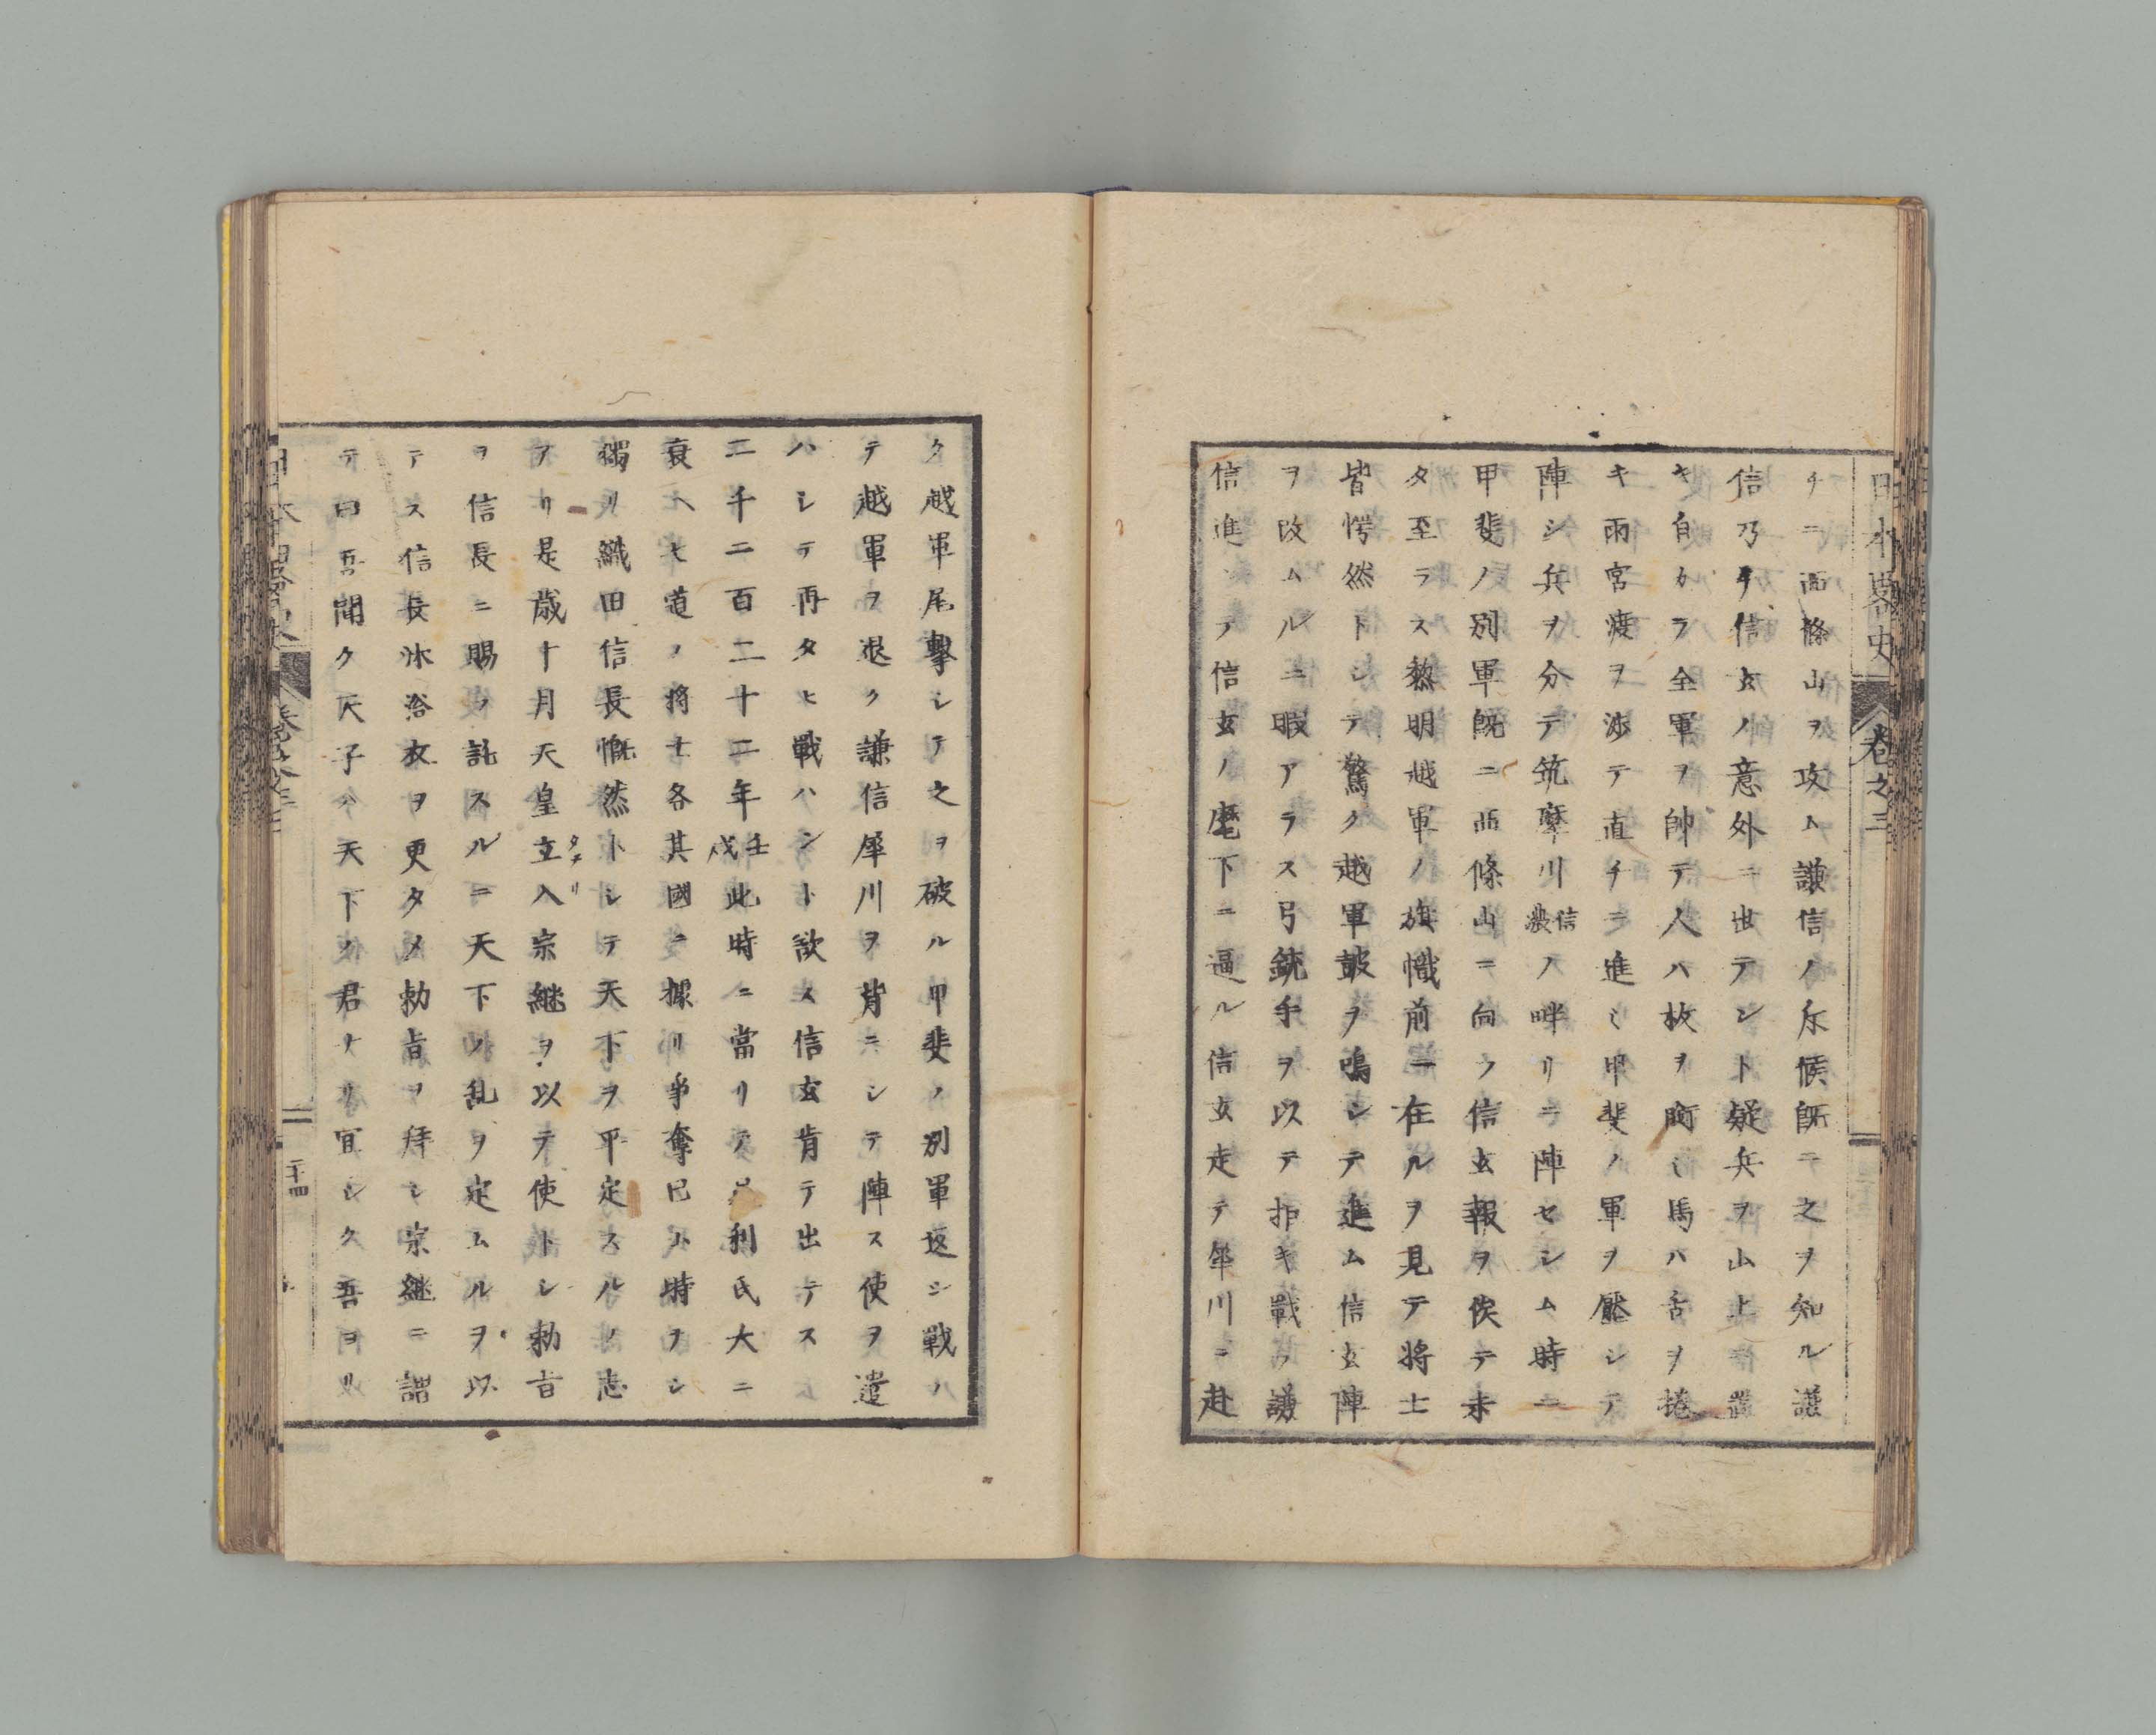 日本畧史 卷之三
チニ西條山ヲ攻ム謙信ノ斥候既ニ之ヲ知ル謙
信乃チ信玄ノ意外ニ出テント疑兵ヲ山上ニ置
キ自カラ全軍ヲ帥テ人ハ枚ヲ㗸ミ馬ハ舌ヲ捲
キ雨宮渡ヲ渉テ直チニ進ミ甲斐ノ軍ヲ壓シテ
陣シ兵ヲ分テ筑摩川信濃ノ畔リニ陣セシム時ニ
甲斐ノ別軍既ニ西條山ニ向フ信玄報ヲ俟テ未
タ至ラス黎明越軍ノ旗幟前ニ在ルヲ見テ将士
皆愕然トシテ驚ク越軍鼓ヲ鳴シテ進ム信玄陣
ヲ改ムルニ暇アラス弓銃手ヲ以テ拒キ戰フ謙
信進ンテ信玄ノ麾下ニ逼ル信玄走テ犀川ニ赴
ク越軍尾擊シテ之ヲ破ル甲斐ノ別軍返シ戰ハ
テ越軍ヲ退ク謙信犀川ヲ背ニシテ陣ス使ヲ遣
ハシテ再タヒ戰ハント欲ス信玄肯テ出テス
二千二百二十二年壬戌此時ニ當リテ足利氏大ニ
衰ヘ七道ノ将士各其國ニ據リ爭奪已ム時ナシ
獨リ織田信長慨然トシテ天下ヲ平定スルノ志
アリ是歳十月天皇立入タテリ宗継ヲ以テ使トシ勅旨
ヲ信長ニ賜ヒ託スルニ天下ノ乱ヲ定ムルヲ以
テス信長沐浴衣ヲ更タメ勅旨ヲ拜シ宗継ニ謂
テ曰吾聞ク天子ハ天下ノ君ナリ宜シク吾ヨリ
二十四